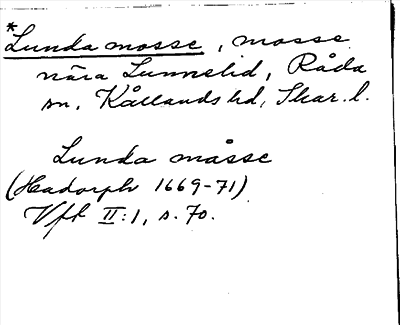 *Lunda mosse, mosse
nära Lunnelid, Råda
sn, Kållands hd, Skar. l.
Lunda måsse
(Hadorph 1669-71)
Vft II:1, s. 70.